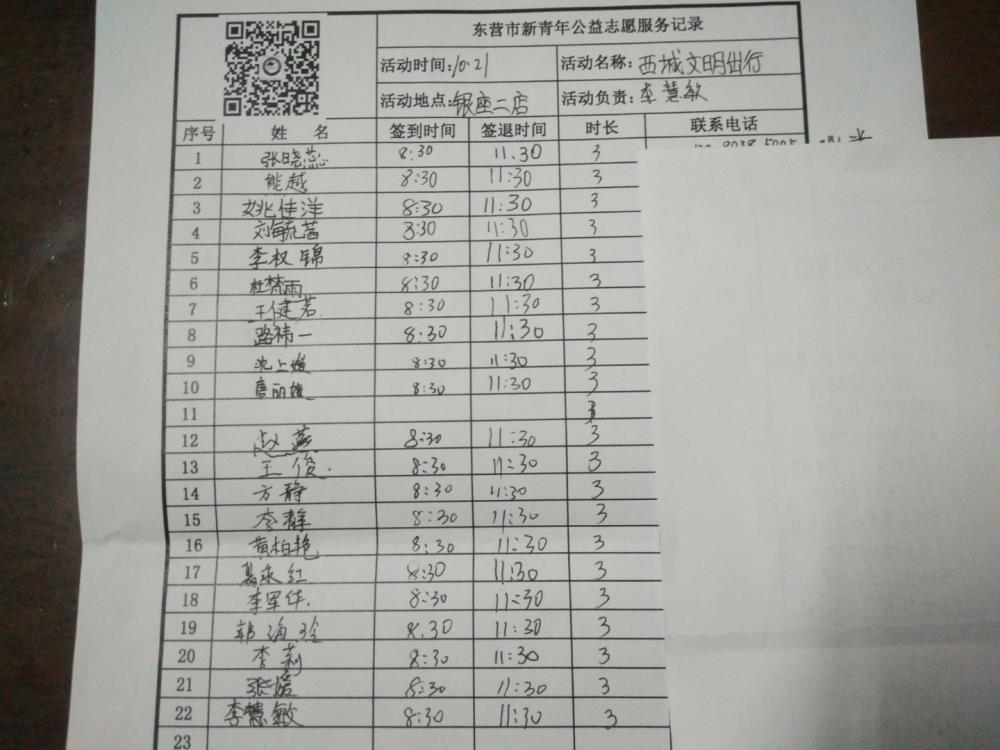 东营市新青年公益志愿服务记录
活动时间:10.21 活动名称:西城文明出行
活动地点:银座二店 活动负责:李慧敏
序号 姓名 签到时间 签退时间 时长 联系电话
1 张晓蕊 8:30 11.30 3
2 能越 8:30 11:30 3
3 姚佳洋 8:30 11:30 3
4 刘毓茜 8:30 11:30 3
5 李权锦 8:30 11:30 3
6 杜梦雨 8:30 11:30 3
7 王健若 8:30 11:30 3
8 路祎一 8:30 11:30 3
9 8:30 11:30 3
10 唐丽娥 8:30 11:30 3
11 3
12 赵燕 8:30 11:30 3
13 王俊. 8:30 11:30 3
14 方静 8:30 11:30 3
15 李静 8:30 11:30 3
16 黄柏艳 8:30 11:30 3
17 8:30 11:30 3
18 李军华. 8:30 11:30 3
19 韩海玲 8.30 11:30 3
20 李莉 8:30 11:30 3
21 张媛 8:30 11:30 3
22 李慧敏 8:30 11:30 3
23